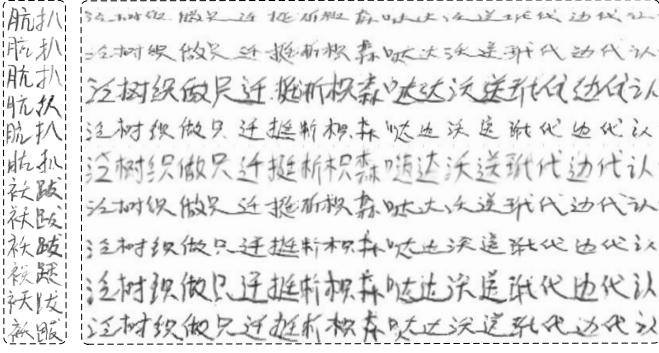 肮扒
肮扒
肮扒
肮扒
肮扒
肮扒
袄跋
袄跋
袄跋
袄跋
袄跋
袄跋
树织做只迁挺析枳森哒达沃送玳代边代认
树织做只迁挺析枳森哒达沃送玳代边代认
树织做只迁挺析枳森哒达沃送玳代边代认
树织做只迁挺析枳森哒达沃送玳代边代认
树织做只迁挺析枳森哒达沃送玳代边代认
树织做只迁挺析枳森哒达沃送玳代边代认
树织做只迁挺析枳森哒达沃送玳代边代认
树织做只迁挺析枳森哒达沃送玳代边代认
树织做只迁挺析枳森哒达沃送玳代边代认